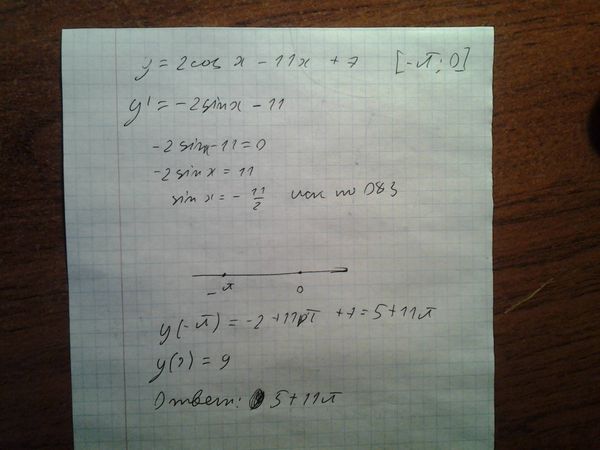 y = 2cos x - 11x + 7 [-π; 0]
y' = -2sinx - 11
-2sinx-11=0
-2sinx = 11
sin x = - 11/2 реш по ОДЗ
-π 0
y(-π) = -2 + 11π + 7 = 5 + 11π
y(0) = 9
Ответ: 5 + 11π